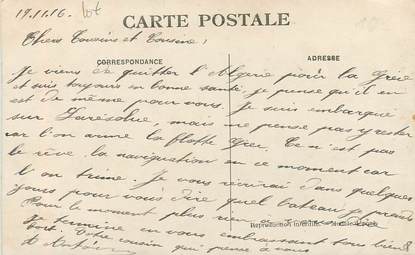 19.11.16.
CARTE POSTALE
Chers Cousins et Cousine,
CORRESPONDANCE
ADRESSE
Je viens de quitter l'Algerie pour la Grèce
et suis toujours en bonne santé, je pense qu'il en
est de même pour vous. Je suis embarqué
sur mais ne pense pas y rester
car l'on arme la flotte Grec. Ce n'est pas
le rêve la navigation en ce moment car
l'on trime. Je vous écrirai dans quelques
jours pour vous dire quel bateau je prends
Pour le moment plus rien
Reproduction interdite
Je termine en vous embrassant tous bien
fort. Votre cousin qui pense à vous